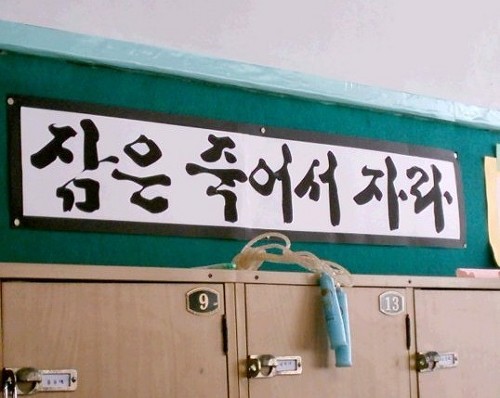 잠은 죽어서 자라
9
13